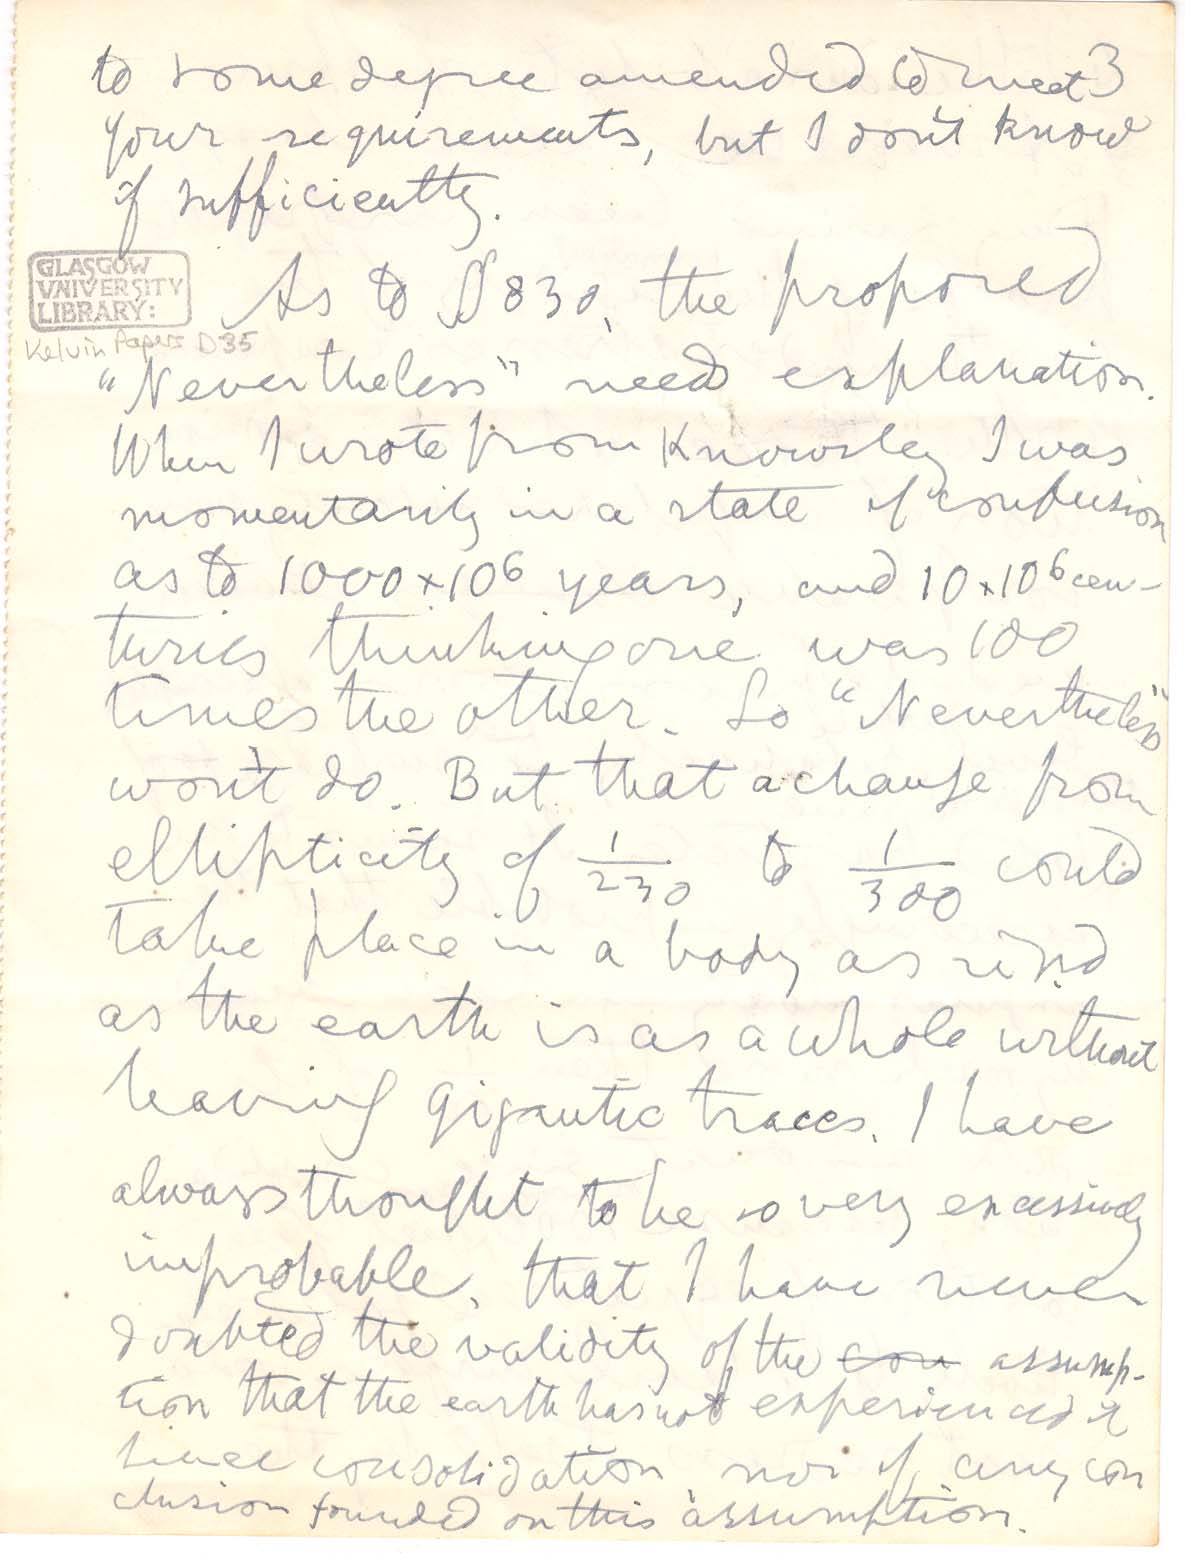 3
to some degree amended to meet
your requirements, but I don't know
if sufficiently.
GLASGOW
UNIVERSITY
LIBRARY:
Kelvin Papers D35
As to § 830, the proposed
"Nevertheless" needs explanation.
When I wrote from Knowsley I was
momentarily in a state of confusion
as to 1000×10⁶ years, and 10×10⁶ cen-
turies thinking one was 100
times the other. So "Nevertheless"
won't do. But that a change from
ellipticity of 1/230 to 1/300 could
take place in a body as rigid
as the earth is as a whole without
leaving gigantic traces. I have
always thought to be so very excessively
improbable, that I have never
doubted the validity of the con assump-
tion that the earth has not experienced it
since consolidation, nor of any con
clusion founded on this assumption.